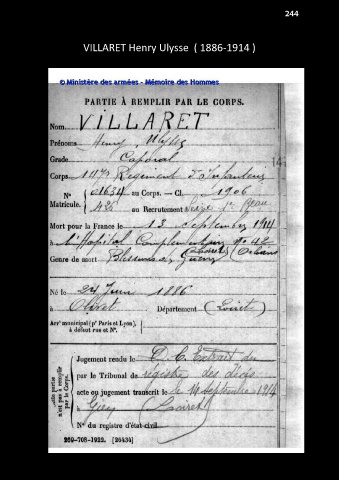 244
VILLARET Henry Ulysse ( 1886-1914 )
© Ministère des armées - Mémoire des Hommes
PARTIE À REMPLIR PAR LE CORPS.
Nom VILLARET
Prénoms Henry Ulysse
Grade Caporal
Corps Régiment d'Infanterie
N° au Corps. — Cl. 1906
Matricule. au Recrutement
Mort pour la France le 13 Septembre 1914
à l'Hôpital Complémentaire n° 42
Genre de mort Blessures de Guerre (Orléans)
Né le 24 Juin 1886
à Olivet Département (Loiret)
Arr' municipal (p' Paris et Lyon),
à défaut rue et N°.
cette partie
n'est pas à remplir
par le Corps.
Jugement rendu le D. C. Extrait du
par le Tribunal de registre des décès
acte ou jugement transcrit le le 14 septembre 1914
à Gien (Loiret)
N° du registre d'état-civil
269-708-1922. [26434]